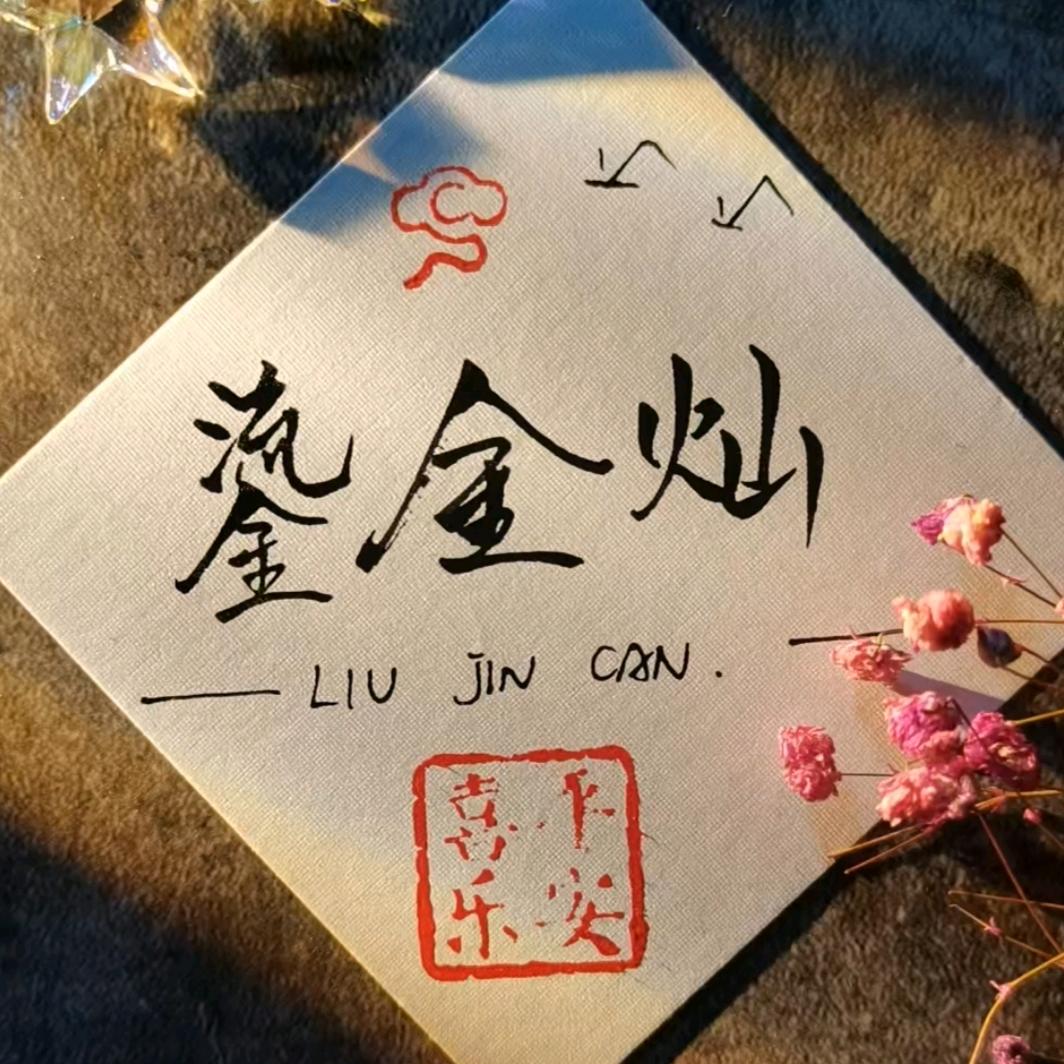 鎏金灿
LIU JIN CAN.
平安
喜乐